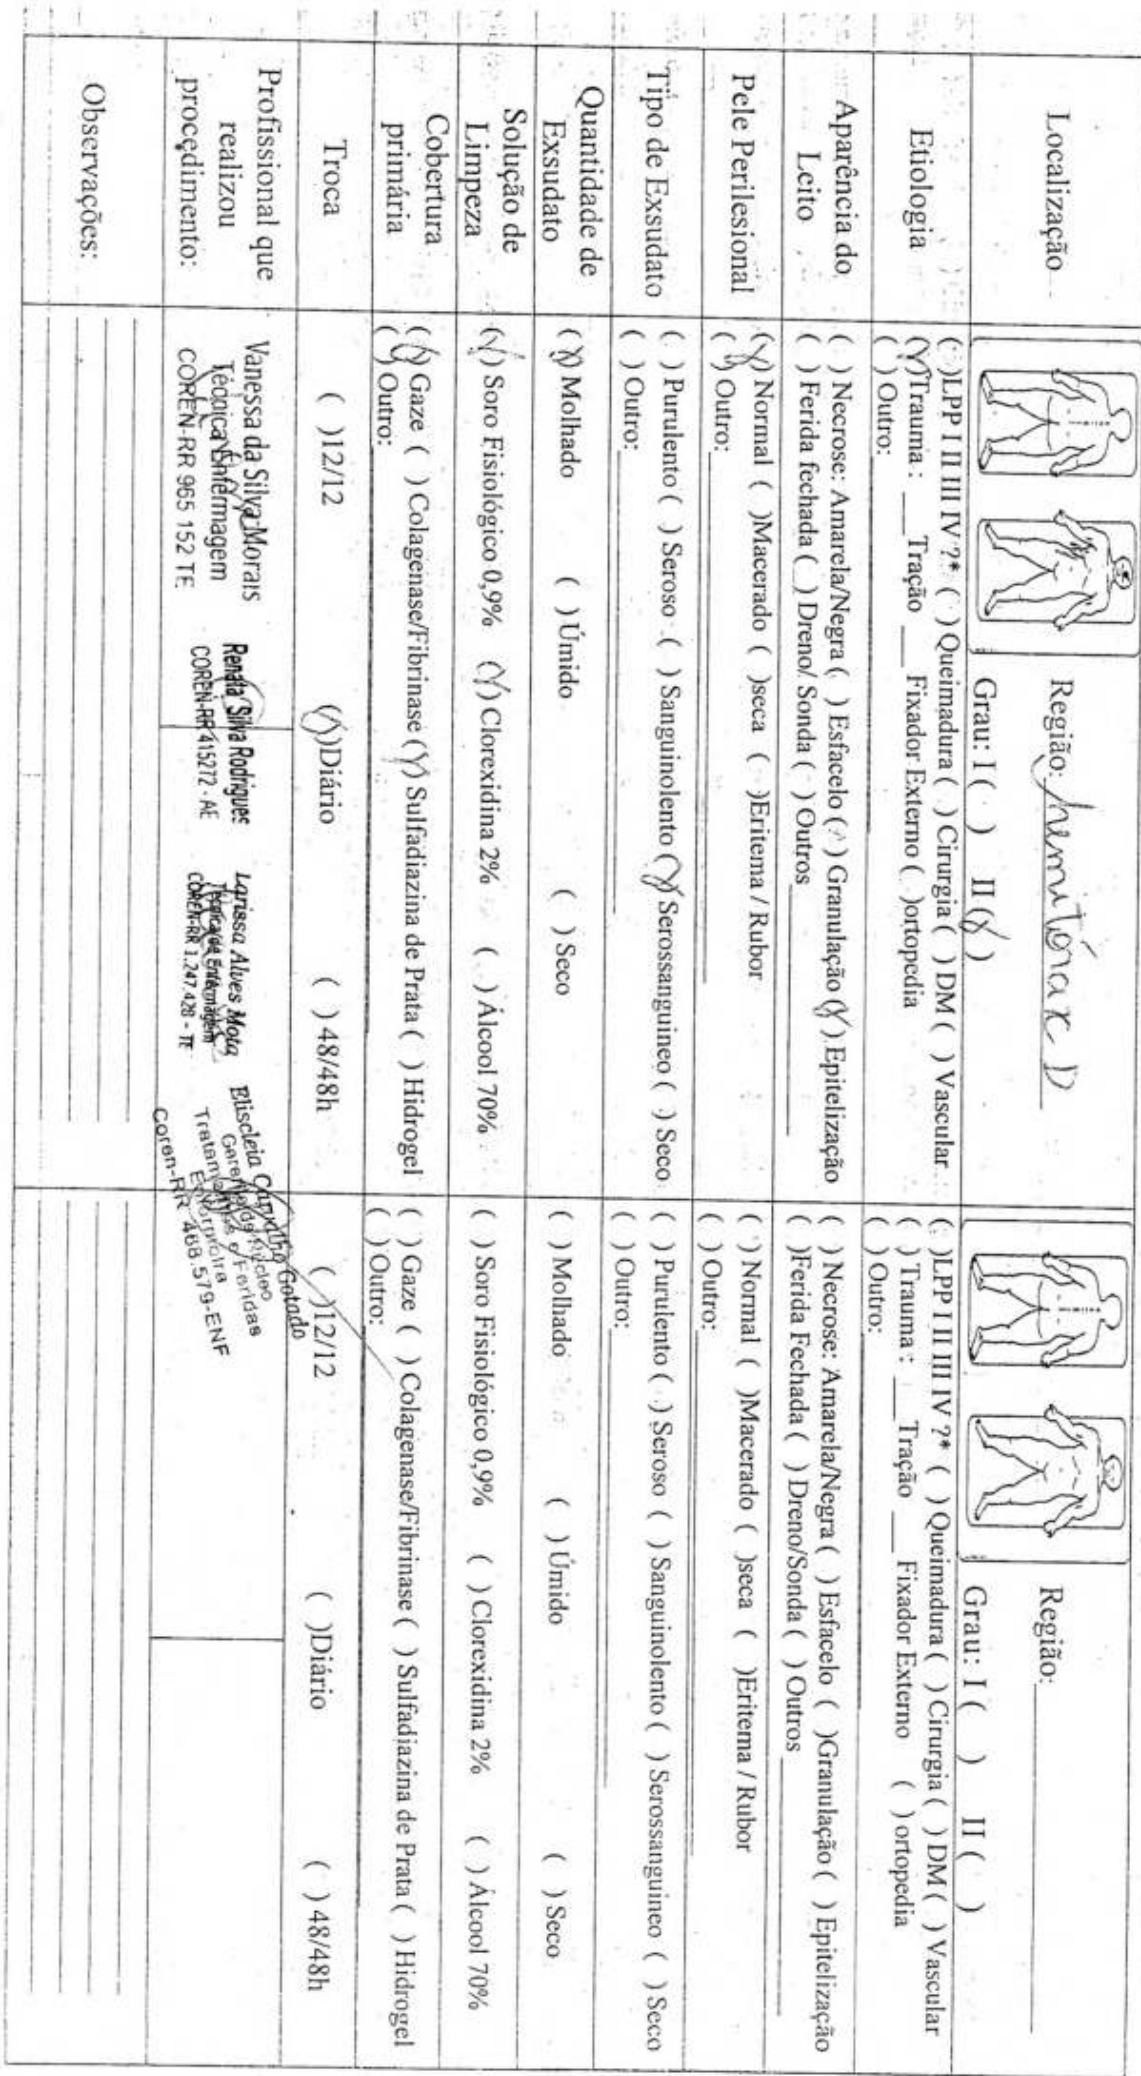 Localização
Região: hemitórax D
Grau: I ( ) II (X)
Região:
Grau: I ( ) II ( )
Etiologia
( )LPP I II III IV ?* ( ) Queimadura ( ) Cirurgia ( ) DM ( ) Vascular
(X)Trauma : ___ Tração ___ Fixador Externo ( )ortopedia
( ) Outro:
( )LPP I II III IV ?* ( ) Queimadura ( ) Cirurgia ( ) DM ( ) Vascular
( ) Trauma : ___ Tração ___ Fixador Externo ( ) ortopedia
( ) Outro:
Aparência do
Leito
( ) Necrose: Amarela/Negra ( ) Esfacelo ( ) Granulação (X) Epitelização
( ) Ferida fechada ( ) Dreno/ Sonda ( ) Outros
( ) Necrose: Amarela/Negra ( ) Esfacelo ( )Granulação ( ) Epitelização
( )Ferida Fechada ( ) Dreno/Sonda ( ) Outros
Pele Perilesional
(X) Normal ( )Macerado ( )seca ( )Eritema / Rubor
( ) Outro:
( ) Normal ( )Macerado ( )seca ( )Eritema / Rubor
( ) Outro:
Tipo de Exsudato
( ) Purulento ( ) Seroso ( ) Sanguinolento (X) Serossanguineo ( ) Seco
( ) Outro:
( ) Purulento ( ) Seroso ( ) Sanguinolento ( ) Serossanguineo ( ) Seco
( ) Outro:
Quantidade de
Exsudato
(X) Molhado ( ) Úmido ( ) Seco
( ) Molhado ( ) Úmido ( ) Seco
Solução de
Limpeza
(X) Soro Fisiológico 0,9% (X) Clorexidina 2% ( ) Álcool 70%
( ) Soro Fisiológico 0,9% ( ) Clorexidina 2% ( ) Álcool 70%
Cobertura
primária
(X) Gaze ( ) Colagenase/Fibrinase (X) Sulfadiazina de Prata ( ) Hidrogel
( ) Outro:
( ) Gaze ( ) Colagenase/Fibrinase ( ) Sulfadiazina de Prata ( ) Hidrogel
( ) Outro:
Troca
( )12/12 (X)Diário ( ) 48/48h
( )12/12 ( )Diário ( ) 48/48h
Profissional que
realizou
procedimento:
Vanessa da Silva Morais
Técnica Enfermagem
COREN-RR 965 152 TE
Renata Silva Rodrigues
COREN-RR 415272 - AE
Larissa Alves Mota
Técnica de Enfermagem
COREN-RR 1.247.428 - TE
Eliscleia Carvalho
Gerente do Núcleo
Tratamento e Feridas
Enfermeira
Coren-RR 468.579-ENF
Observações: